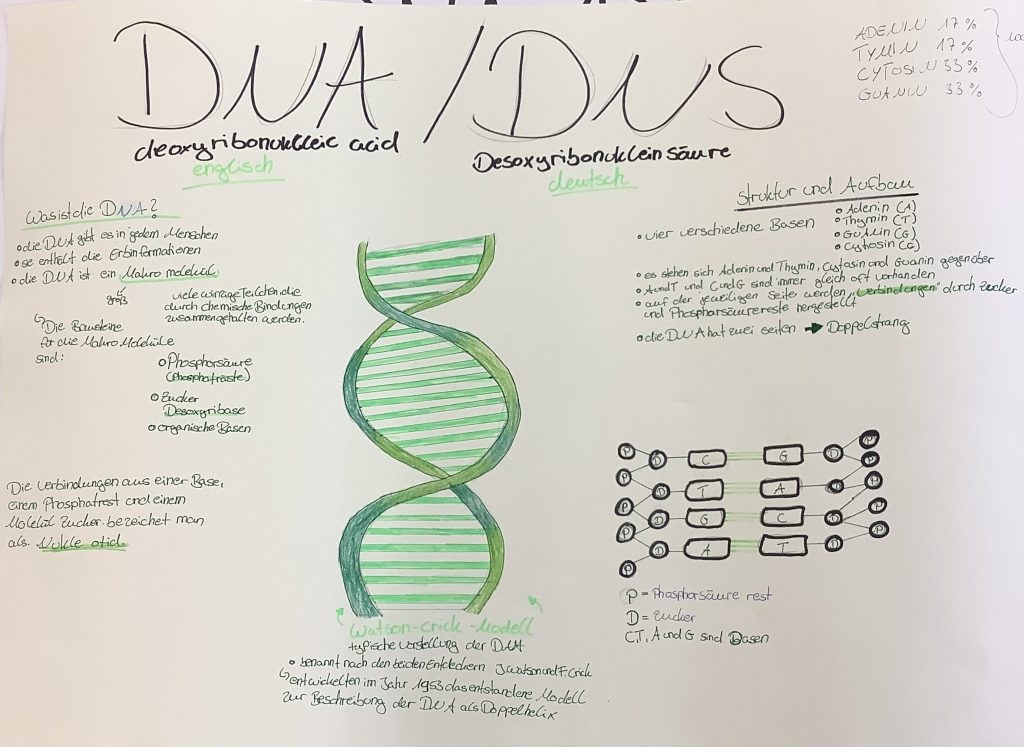 DNA / DNS
deoxyribonukleic acid
englisch
Desoxyribonukleinsäure
deutsch
ADENIN 17%
TYMIN 17%
CYTOSIN 33%
GUANIN 33%
Was ist die DNA?
die DNA gibt es in jedem Menschen
se enthält die Erbinformationen
die DNA ist ein Makro molekül
groß
viele winzige Teilchen, die
durch chemische Bindungen
zusammengehalten werden.
Die Bausteine
für die Makro Moleküle
sind:
Phosphorsäure
(Phosphatreste)
Zucker
Desoxyribose
organische Basen
Die Verbindungen aus einer Base,
einem Phosphatrest und einem
Molekül Zucker bezeichet man
als Nukle otid.
Watson-Crick-Modell
typische Vorstellung der DNA
benannt nach den beiden Entdeckern J Watson und F Crick
entwickelten im Jahr 1953 das entstandene Modell
zur Beschreibung der DNA als Doppelhelix
Struktur und Aufbau
vier verschiedene Basen
Adenin (A)
Thymin (T)
Guanin (G)
Cytosin (C)
es stehen sich Adenin und Thymin, Cytosin und Guanin gegenüber
A und T und C und G sind immer gleich oft vorhanden
auf der jeweiligen Seite werden „Verbindungen" durch Zucker
und Phosphorsäurereste hergestellt
die DNA hat zwei seiten → Doppelstrang
P D C G D P
P D T A D P
P D G C D P
P D A T D P
P P
P = Phosphorsäure rest
D = Zucker
C,T, A und G sind Basen